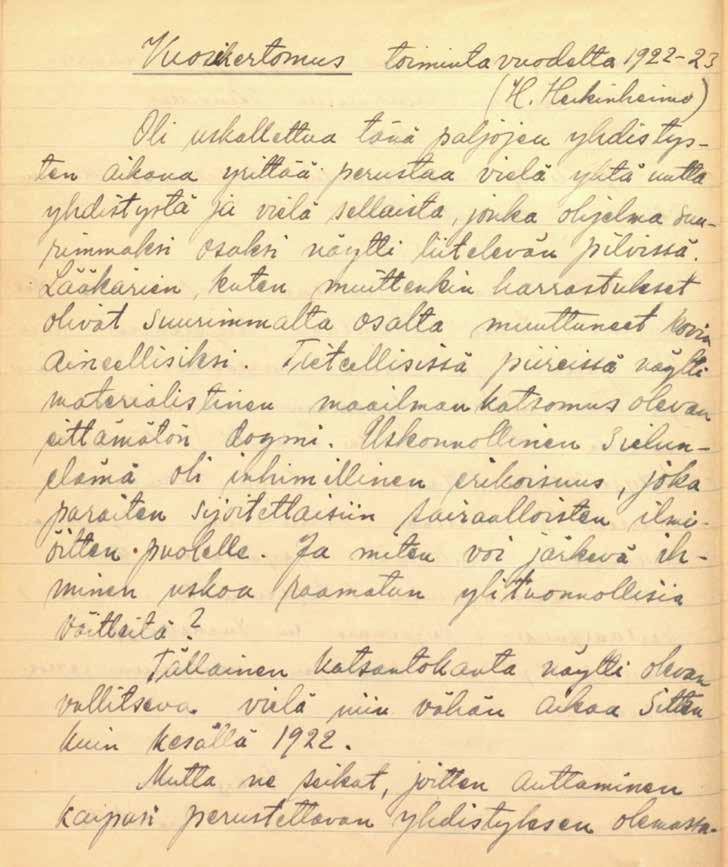 Vuosikertomus toimintavuodelta 1922-23
(H. Heikinheimo)
Oli uskallettua tänä paljojen yhdistys-
ten aikana yrittää perustaa vielä yhtä uutta
yhdistystä ja vielä sellaista, jonka ohjelma suu-
rimmaksi osaksi näytti liitelevän pilvissä.
Lääkärien, kuten muittenkin harrastukset
olivat suurimmalta osalta muuttuneet kovin
aineellisiksi. Tieteellisissä piireissä näytti
materialistinen maailmankatsomus olevan
eittämätön dogmi. Uskonnollinen sielun-
elämä oli inhimillinen erikoisuus, joka
paraiten sijoitettaisiin sairaalloisten ilmi-
öitten puolelle. Ja miten voi järkevä ih-
minen uskoa raamatun ylituonnollisia
väitteitä?
Tällainen katsantokanta näytti olevan
vallitseva vielä niin vähän aikaa sitten
kuin kesällä 1922.
Mutta ne seikat, joitten auttaminen
kaipasi perustettavan yhdistyksen olemassa-